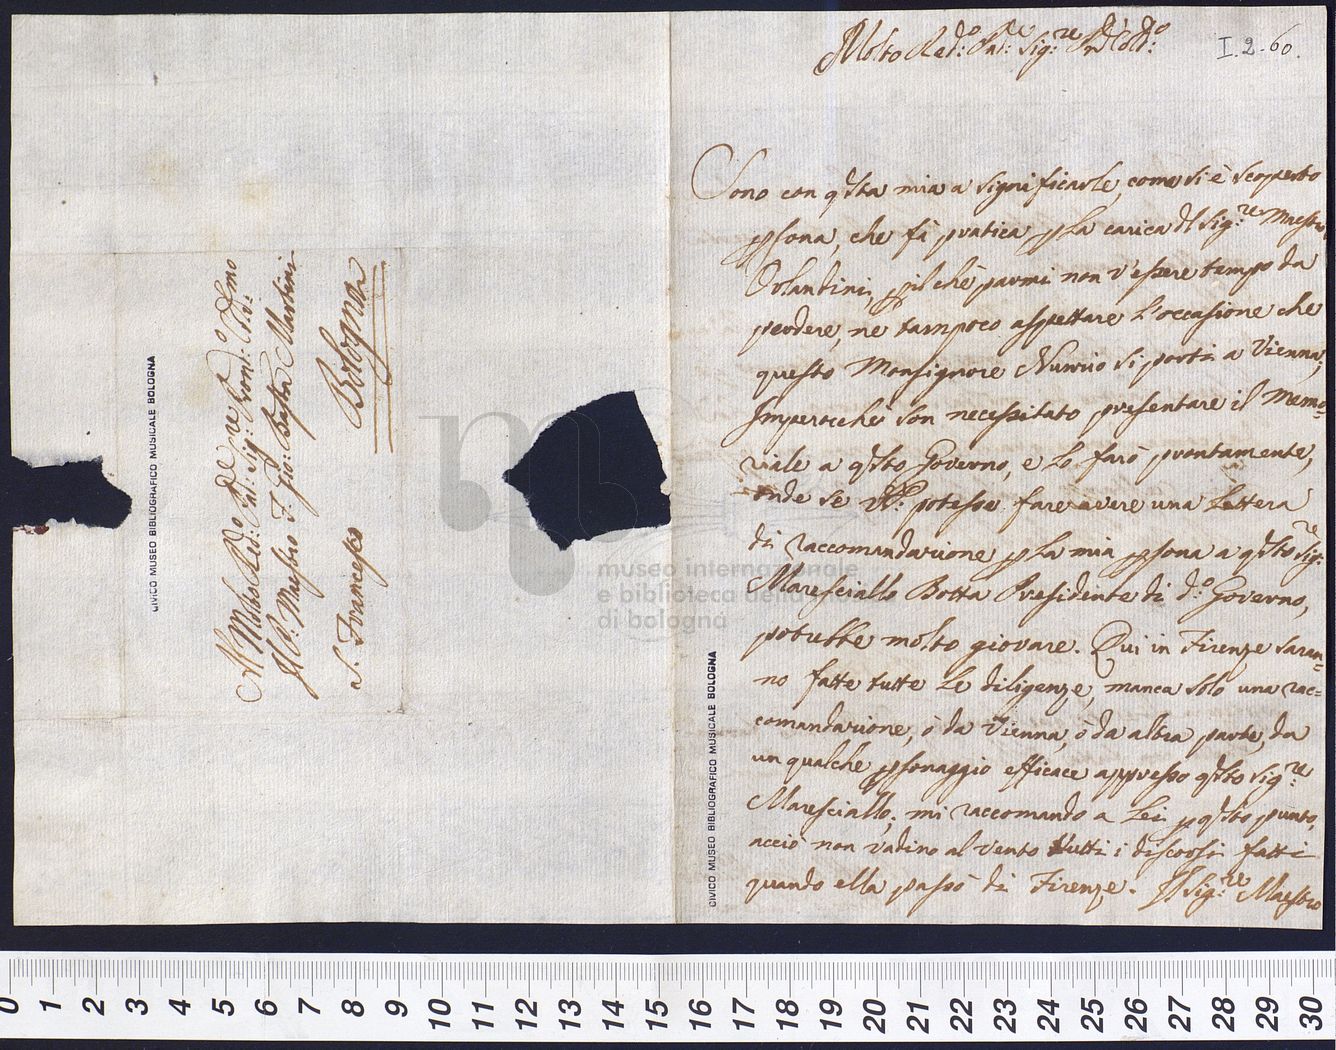 Al Molto Red:o Pad:re Sig:r Pron: Col:mo
Il P: Maestro F. Gio: Batta Martini
S. Francesco
Bologna
CIVICO MUSEO BIBLIOGRAFICO MUSICALE BOLOGNA
Molto Red:o Pad:re Sig:re Pron Col:mo
I. 2. 60.
Sono con qsta mia a significarle, come si è scoperto
psona, che fà pratica p la carica dl Sig:re Maestro
Orlandini, p il chè parmi non v'essere tempo da
perdere, ne tampoco aspettare l'occasione che
questo Monsignore Nunzio si porti a Vienna;
Imperochè son necessitato presentare il Memo=
riale a qsto Governo, e lo farò prontamente,
onde se V.P. potesse fare avere una Lettera
di raccomandazione p la mia psona a qsto Sig:r
Maresciallo Botta Presidente di d:o Governo,
potrebbe molto giovare. Qui in Firenze saran=
no fatte tutte le diligenze, manca solo una rac=
comandazione, ò da Vienna, ò da altra parte, da
un qualche psonaggio efficace appresso qsto Sig:re
Maresciallo; mi raccomando a Lei p qsto punto,
acciò non vadino al vento tutti i discorsi fatti
quando ella passò di Firenze. Il Sig:re Maestro
CIVICO MUSEO BIBLIOGRAFICO MUSICALE BOLOGNA
museo internazionale
e biblioteca della musica
di bologna
0 1 2 3 4 5 6 7 8 9 10 11 12 13 14 15 16 17 18 19 20 21 22 23 24 25 26 27 28 29 30